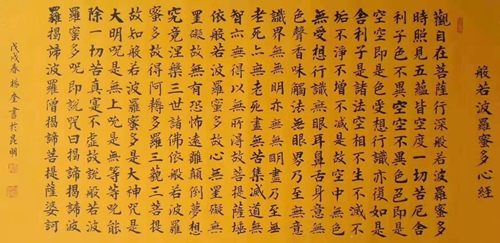 般若波羅蜜多心經
觀自在菩薩行深般若波羅蜜多
時照見五蘊皆空度一切苦厄舍
利子色不異空空不異色色即是
空空即是色受想行識亦復如是
舍利子是諸法空相不生不滅不
垢不淨不增不減是故空中無色
無受想行識無眼耳鼻舌身意無
色聲香味觸法無眼界乃至無意
識界無無明亦無無明盡乃至無
老死亦無老死盡無苦集滅道無
智亦無得以無所得故菩提薩埵
依般若波羅蜜多故心無罣礙無
罣礙故無有恐怖遠離顛倒夢想
究竟涅槃三世諸佛依般若波羅
蜜多故得阿耨多羅三藐三菩提
故知般若波羅蜜多是大神咒是
大明咒是無上咒是無等等咒能
除一切苦真實不虛故說般若波
羅蜜多咒即說咒曰揭諦揭諦波
羅揭諦波羅僧揭諦菩提薩婆訶
戊戌春楊奎書於昆明